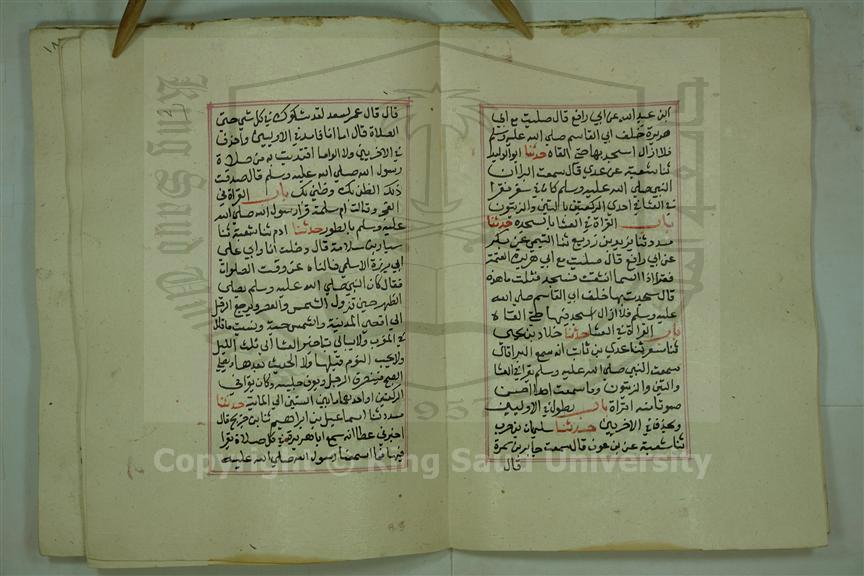 ابن عبد الله عن ابي رافع قال صليت مع ابي
هريرة خلف ابي القاسم صلى الله عليه وسلم
فلا ازال اسجد بها حتى القاه حدثنا ابو الوليد
ثنا شعبة عن عدي قال سمعت البرا ان
النبي صلى الله عليه وسلم كان في سفر فقرا
في العشا في احدى الركعتين بالتين والزيتون
باب القراة في العشا بالسجدة حدثنا
مسدد ثنا يزيد بن زريع ثنا التيمي عن بكر
عن ابي رافع قال صليت مع ابي هريرة العتمة
فقرا اذا السما انشقت فسجد فقلت ما هذه
قال سجدت بها خلف ابي القاسم صلى الله
عليه وسلم فلا ازال اسجد فيها حتى القاه
باب القراة في العشا حدثنا خلاد بن يحيى
ثنا مسعر ثنا عدي بن ثابت انه سمع البرا قال
سمعت النبي صلى الله عليه وسلم يقرا في العشا
والتين والزيتون وما سمعت احدا احسن
صوتا منه او قراة باب يطول في الاوليين
ويحذف في الاخريين حدثنا سليمان بن حرب
ثنا شعبة عن ابن عون قال سمعت جابر بن سمرة
قال
قال قال عمر لسعد لقد شكوك في كل شي حتى
الصلاة قال اما انا فامد في الاوليين واحذف
في الاخريين ولا الوا ما اقتديت به من صلاة
رسول الله صلى الله عليه وسلم قال صدقت
ذلك الظن بك وظني بك باب القراة في
الفجر وقالت ام سلمة قرا رسول الله صلى الله
عليه وسلم بالطور حدثنا ادم ثنا شعبة ثنا
سيار بن سلامة قال دخلت انا وابي على
ابي برزة الاسلمي فسالناه عن وقت الصلوات
فقال كان النبي صلى الله عليه وسلم يصلي
الظهر حين تزول الشمس والعصر ويرجع الرجل
الى اقصى المدينة والشمس حية ونسيت ما قال
في المغرب ولا يبالي بتاخير العشا الى ثلث الليل
ولا يحب النوم قبلها ولا الحديث بعدها ويصلي
الصبح فينصرف الرجل ويعرف جليسه وكان يقرا في
الركعتين او احداهما ما بين الستين الى الماية حدثنا
مسدد ثنا اسماعيل بن ابراهيم ثنا بن جريج قال
اخبرني عطا انه سمع ابا هريرة في كل صلاة يقرا
فيها فما اسمعنا رسول الله صلى الله عليه
Copyright © King Saud University
1957